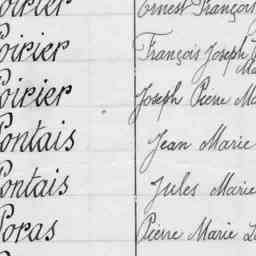 Poirier Ernest François
Poirier François Joseph
Poirier Joseph Pierre
Pontais Jean Marie
Pontais Jules Marie
Poras Pierre Marie